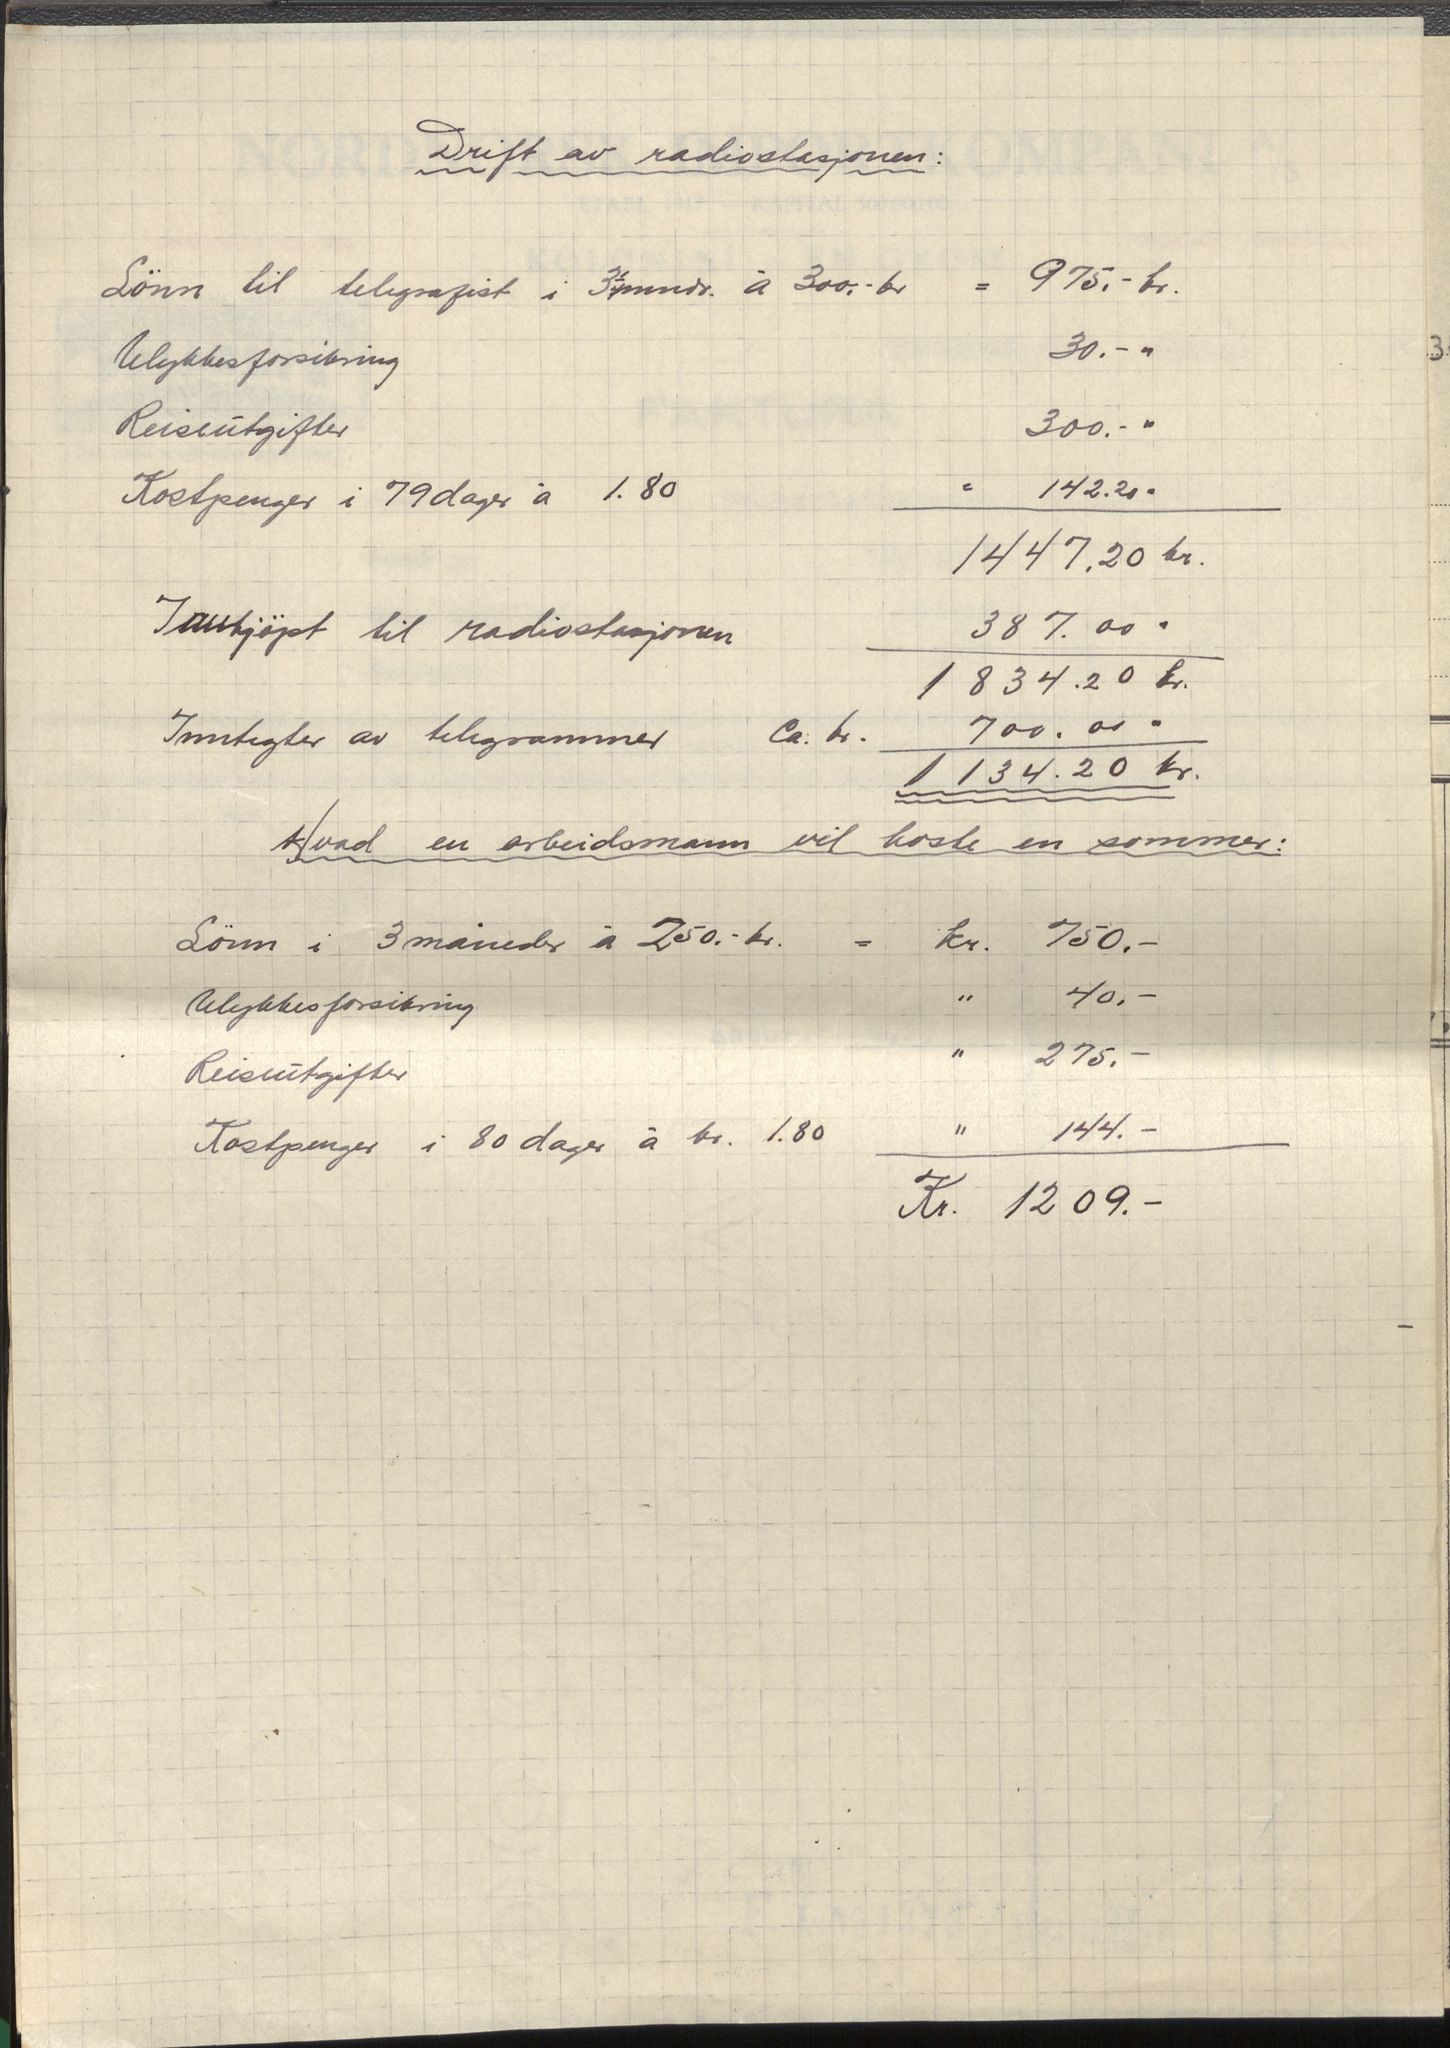 Drift av radiostasjonen:
Lönn til telegrafist i 3¼ mndr. à 300.- kr = 975.- kr.
Ulykkesforsikring 30.- "
Reiseutgifter 300.- "
Kostpenger i 79 dager à 1.80 " 142.20 "
1447.20 kr.
Innkjöpt til radiostasjonen 387.00 "
1834.20 kr.
Inntegter av telegrammer Ca. kr. 700.00 "
1134.20 kr.
Hvad en arbeidsmann vil koste en sommer:
Lönn i 3 måneder à 250.- kr. = kr. 750.-
Ulykkesforsikring " 40.-
Reiseutgifter " 275.-
Kostpenger i 80 dager à kr. 1.80 " 144.-
Kr. 1209.-